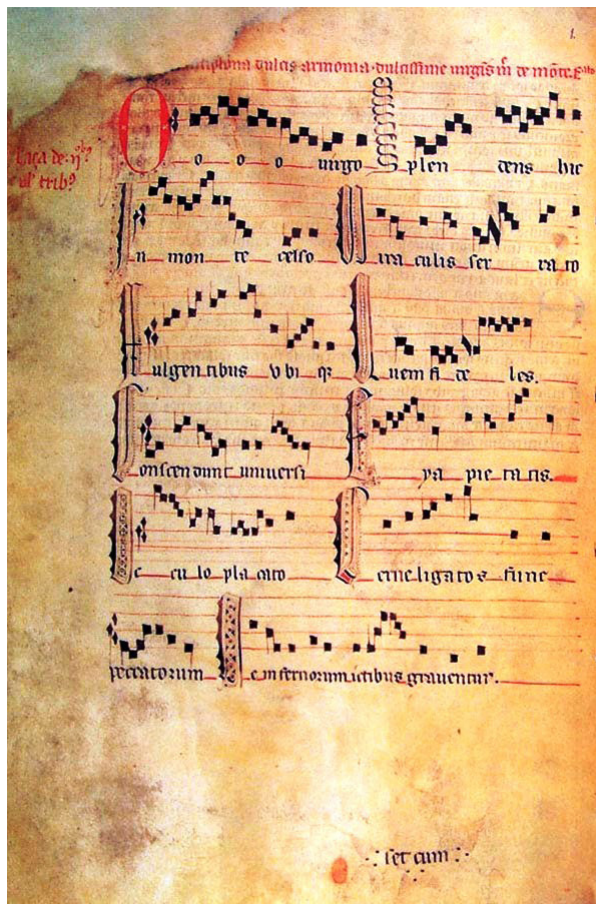 1.
antiphona dulcis armonia dulcissime virgĩs
O o o o virgo splendens hic
In mon te celso Mira culis ser ra to
Fulgentibus vbi qȝ Quem fi de les.
Conscendunt universi Eya pie ta tis.
Oc cu lo pla cato Cerne ligatos fune
peccatorum Ne infernorum ictibus graventur.
set cum